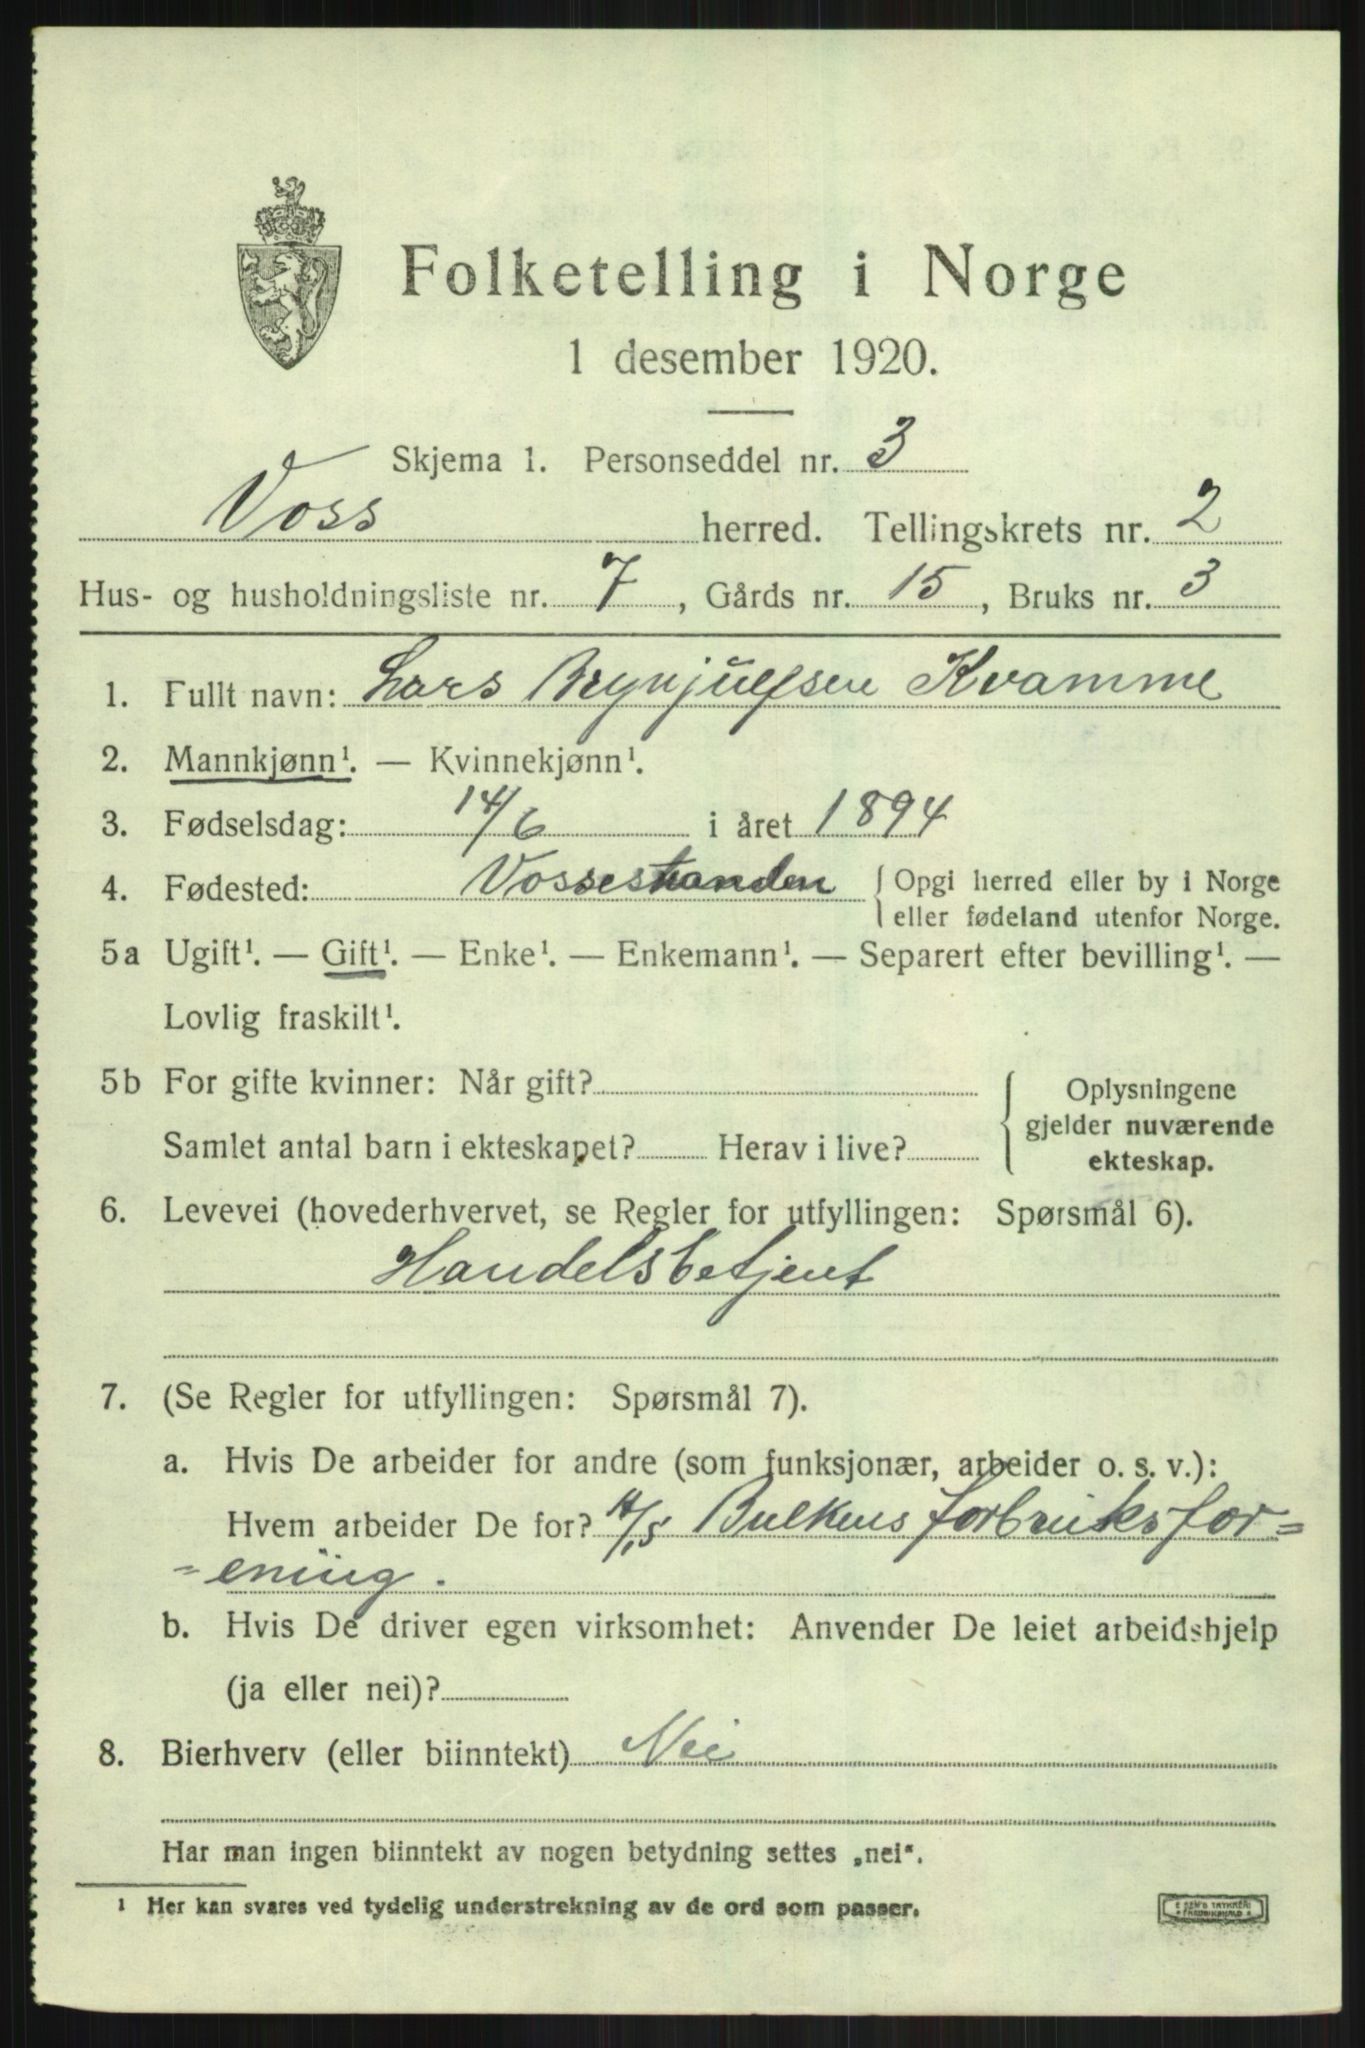 Folketelling i Norge
1 desember 1920.
Skjema 1. Personseddel nr. 3
Voss herred. Tellingskrets nr. 2
Hus- og husholdningsliste nr. 7, Gårds nr. 15, Bruks nr. 3
1. Fullt navn: Lars Brynjulfsen Kvamme
2. Mannkjønn¹. — Kvinnekjønn¹.
3. Fødselsdag: 14/6 i året 1894
4. Fødested: Vossestranden { Opgi herred eller by i Norge
eller fødeland utenfor Norge.
5a Ugift¹. — Gift¹. — Enke¹. — Enkemann¹. — Separert efter bevilling¹. —
Lovlig fraskilt¹.
5b For gifte kvinner: Når gift?
Samlet antal barn i ekteskapet? Herav i live?
{ Oplysningene
gjelder nuværende
ekteskap.
6. Levevei (hovederhvervet, se Regler for utfyllingen: Spørsmål 6).
Handelsbetjent
7. (Se Regler for utfyllingen: Spørsmål 7).
a. Hvis De arbeider for andre (som funksjonær, arbeider o. s. v.):
Hvem arbeider De for? Bulkens forbruksfor=
=ening.
b. Hvis De driver egen virksomhet: Anvender De leiet arbeidshjelp
(ja eller nei)?
8. Bierhverv (eller biinntekt) Nei
Har man ingen biinntekt av nogen betydning settes „nei“.
¹ Her kan svares ved tydelig understrekning av de ord som passer.